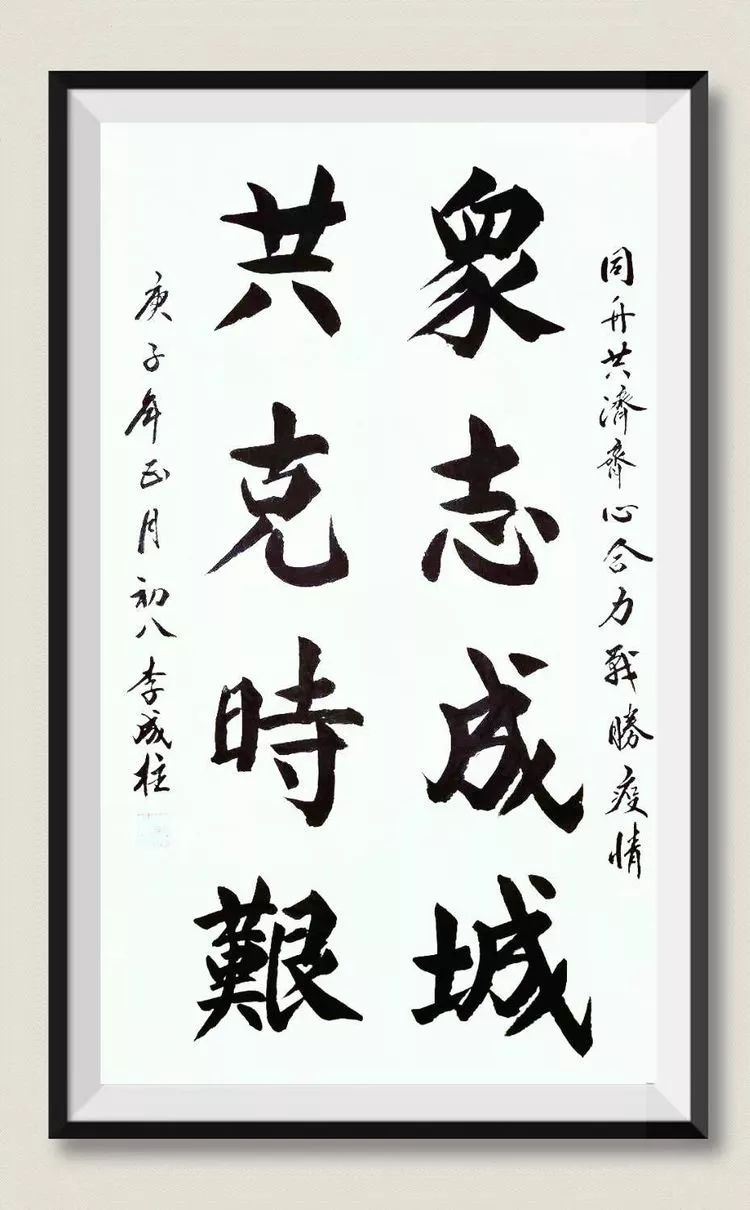 同舟共濟齊心合力戰勝疫情
眾志成城
共克時艱
庚子年正月初八李成柱